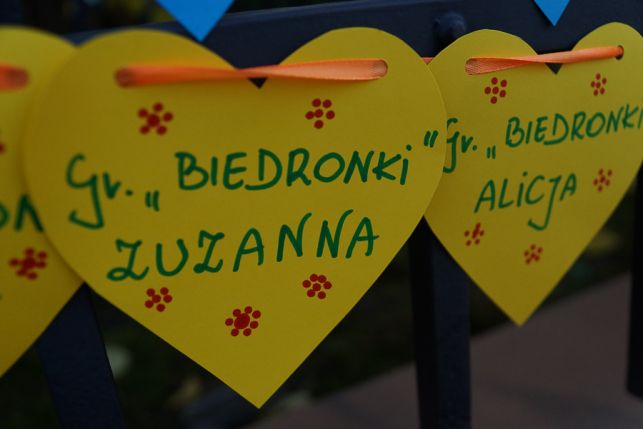 Gr. „BIEDRONKI”
ZUZANNA
Gr. „BIEDRONKI
ALICJA